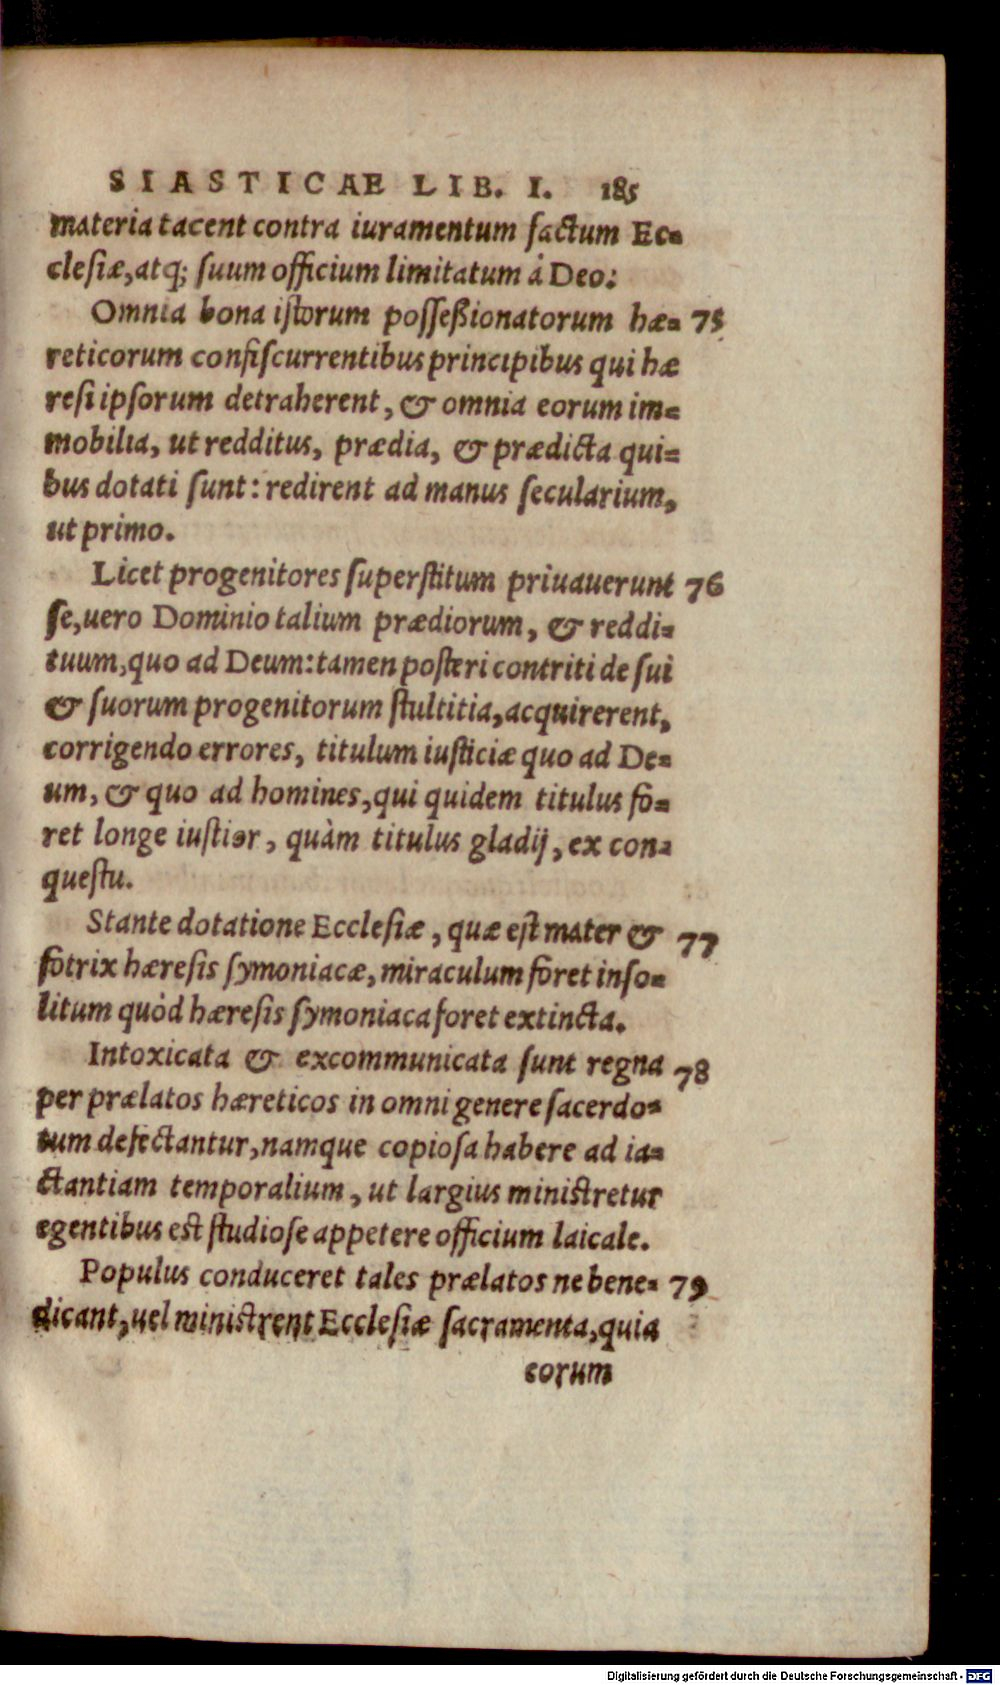 SIASTICAE LIB. I. 185
materia tacent contra iuramentum factum Ec=
clesiæ, atq; suum officium limitatum à Deo:
Omnia bona istorum possessionatorum hæ= 75
reticorum confiscurrentibus principibus qui hæ
resi ipsorum detraherent, & omnia eorum im=
mobilia, ut redditus, prædia, & prædicta qui=
bus dotati sunt: redirent ad manus secularium,
ut primo.
Licet progenitores superstitum priuauerunt 76
se, uero Dominio talium prædiorum, & reddi=
tuum, quo ad Deum: tamen posteri contriti de sui
& suorum progenitorum stultitia, acquirerent,
corrigendo errores, titulum iusticiæ quo ad De=
um, & quo ad homines, qui quidem titulus fo=
ret longe iustior, quàm titulus gladij, ex con=
questu.
Stante dotatione Ecclesiæ, quæ est mater & 77
fotrix hæresis symoniacæ, miraculum foret inso=
litum quòd hæresis symoniaca foret extincta.
Intoxicata & excommunicata sunt regna 78
per prælatos hæreticos in omni genere sacerdo=
tum defectantur, namque copiosa habere ad ia=
ctantiam temporalium, ut largius ministretur
egentibus est studiose appetere officium laicale.
Populus conduceret tales prælatos ne bene= 79
dicant, uel ministrent Ecclesiæ sacramenta, quia
eorum
Digitalisierung gefördert durch die Deutsche Forschungsgemeinschaft - DFG